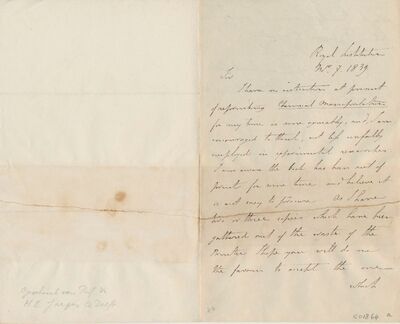 Royal Institution
7. 1839
Sir
I have no intention at present
of reprinting Chemical Manipulation
for my time is more agreeably, and I am
encouraged to think, not less usefully
employed in experimental researches
I am aware the book has been out of
print for some time and believe it
is not easy to procure. As I have
two or three copies which have been
gathered out of the waste of the
Printer I hope you will do me
the favour to accept the one
which
H.E. Jaeger te Delft
a